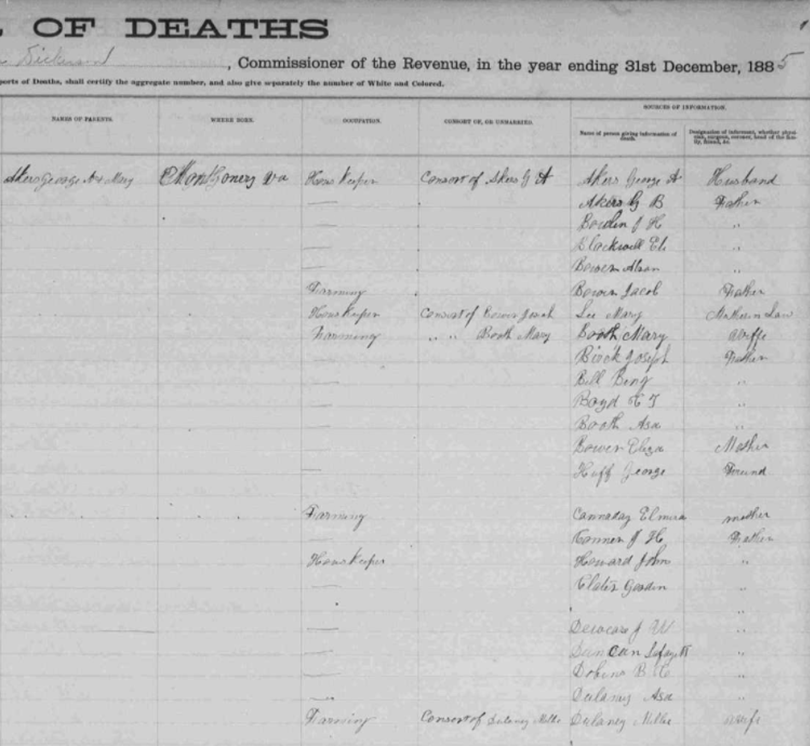 OF DEATHS
Dickerson, Commissioner of the Revenue, in the year ending 31st December, 1885
ports of Deaths, shall certify the aggregate number, and also give separately the number of White and Colored.
SOURCES OF INFORMATION.
NAMES OF PARENTS. WHERE BORN. OCCUPATION. CONSORT OF, OR UNMARRIED. Name of person giving information of death. Designation of informant, whether physician, surgeon, coroner, head of the family, friend, &c.
Akers George A & Mary Montgomery Va Hous Keeper Consort of Akers G A Akers George A Husband
— Akers G B Father
— Bowden J H "
— Blackwell "
— Bower "
Farming Bower Jacob Father
Hous Keeper Consort of Bower Lee Mary Mother in Law
Farming " " Booth Mary Booth Mary Wiffe
— Joseph Father
— Bill "
— Boyd "
— Booth Asa "
Bower Eliza Mother
— Huff George Freind
Farming Cannaday Elmira mother
— J H Father
Hous Keeper Howard John "
— Goodin "
"
— J W "
— Duncan Lafayett "
— B "
" Dulaney Asa "
Farming Consort of Dulaney Millie Dulaney Millie wife